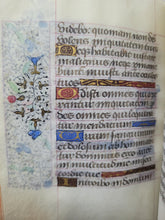 videbo: quoniam non deus
volens iniquitatem tu es
Neque habitabit iuxta te
malignus neque permane
bunt iniusti ante oculos
tuos
Odisti omnes qui operan
tur iniquitatem per
des omnes qui loquun
tur mendacium
Virum sanguinum
et dolosum abhomina
bitur dominus ego autem
in multitudine miseri
cordie tue
Introibo in domum